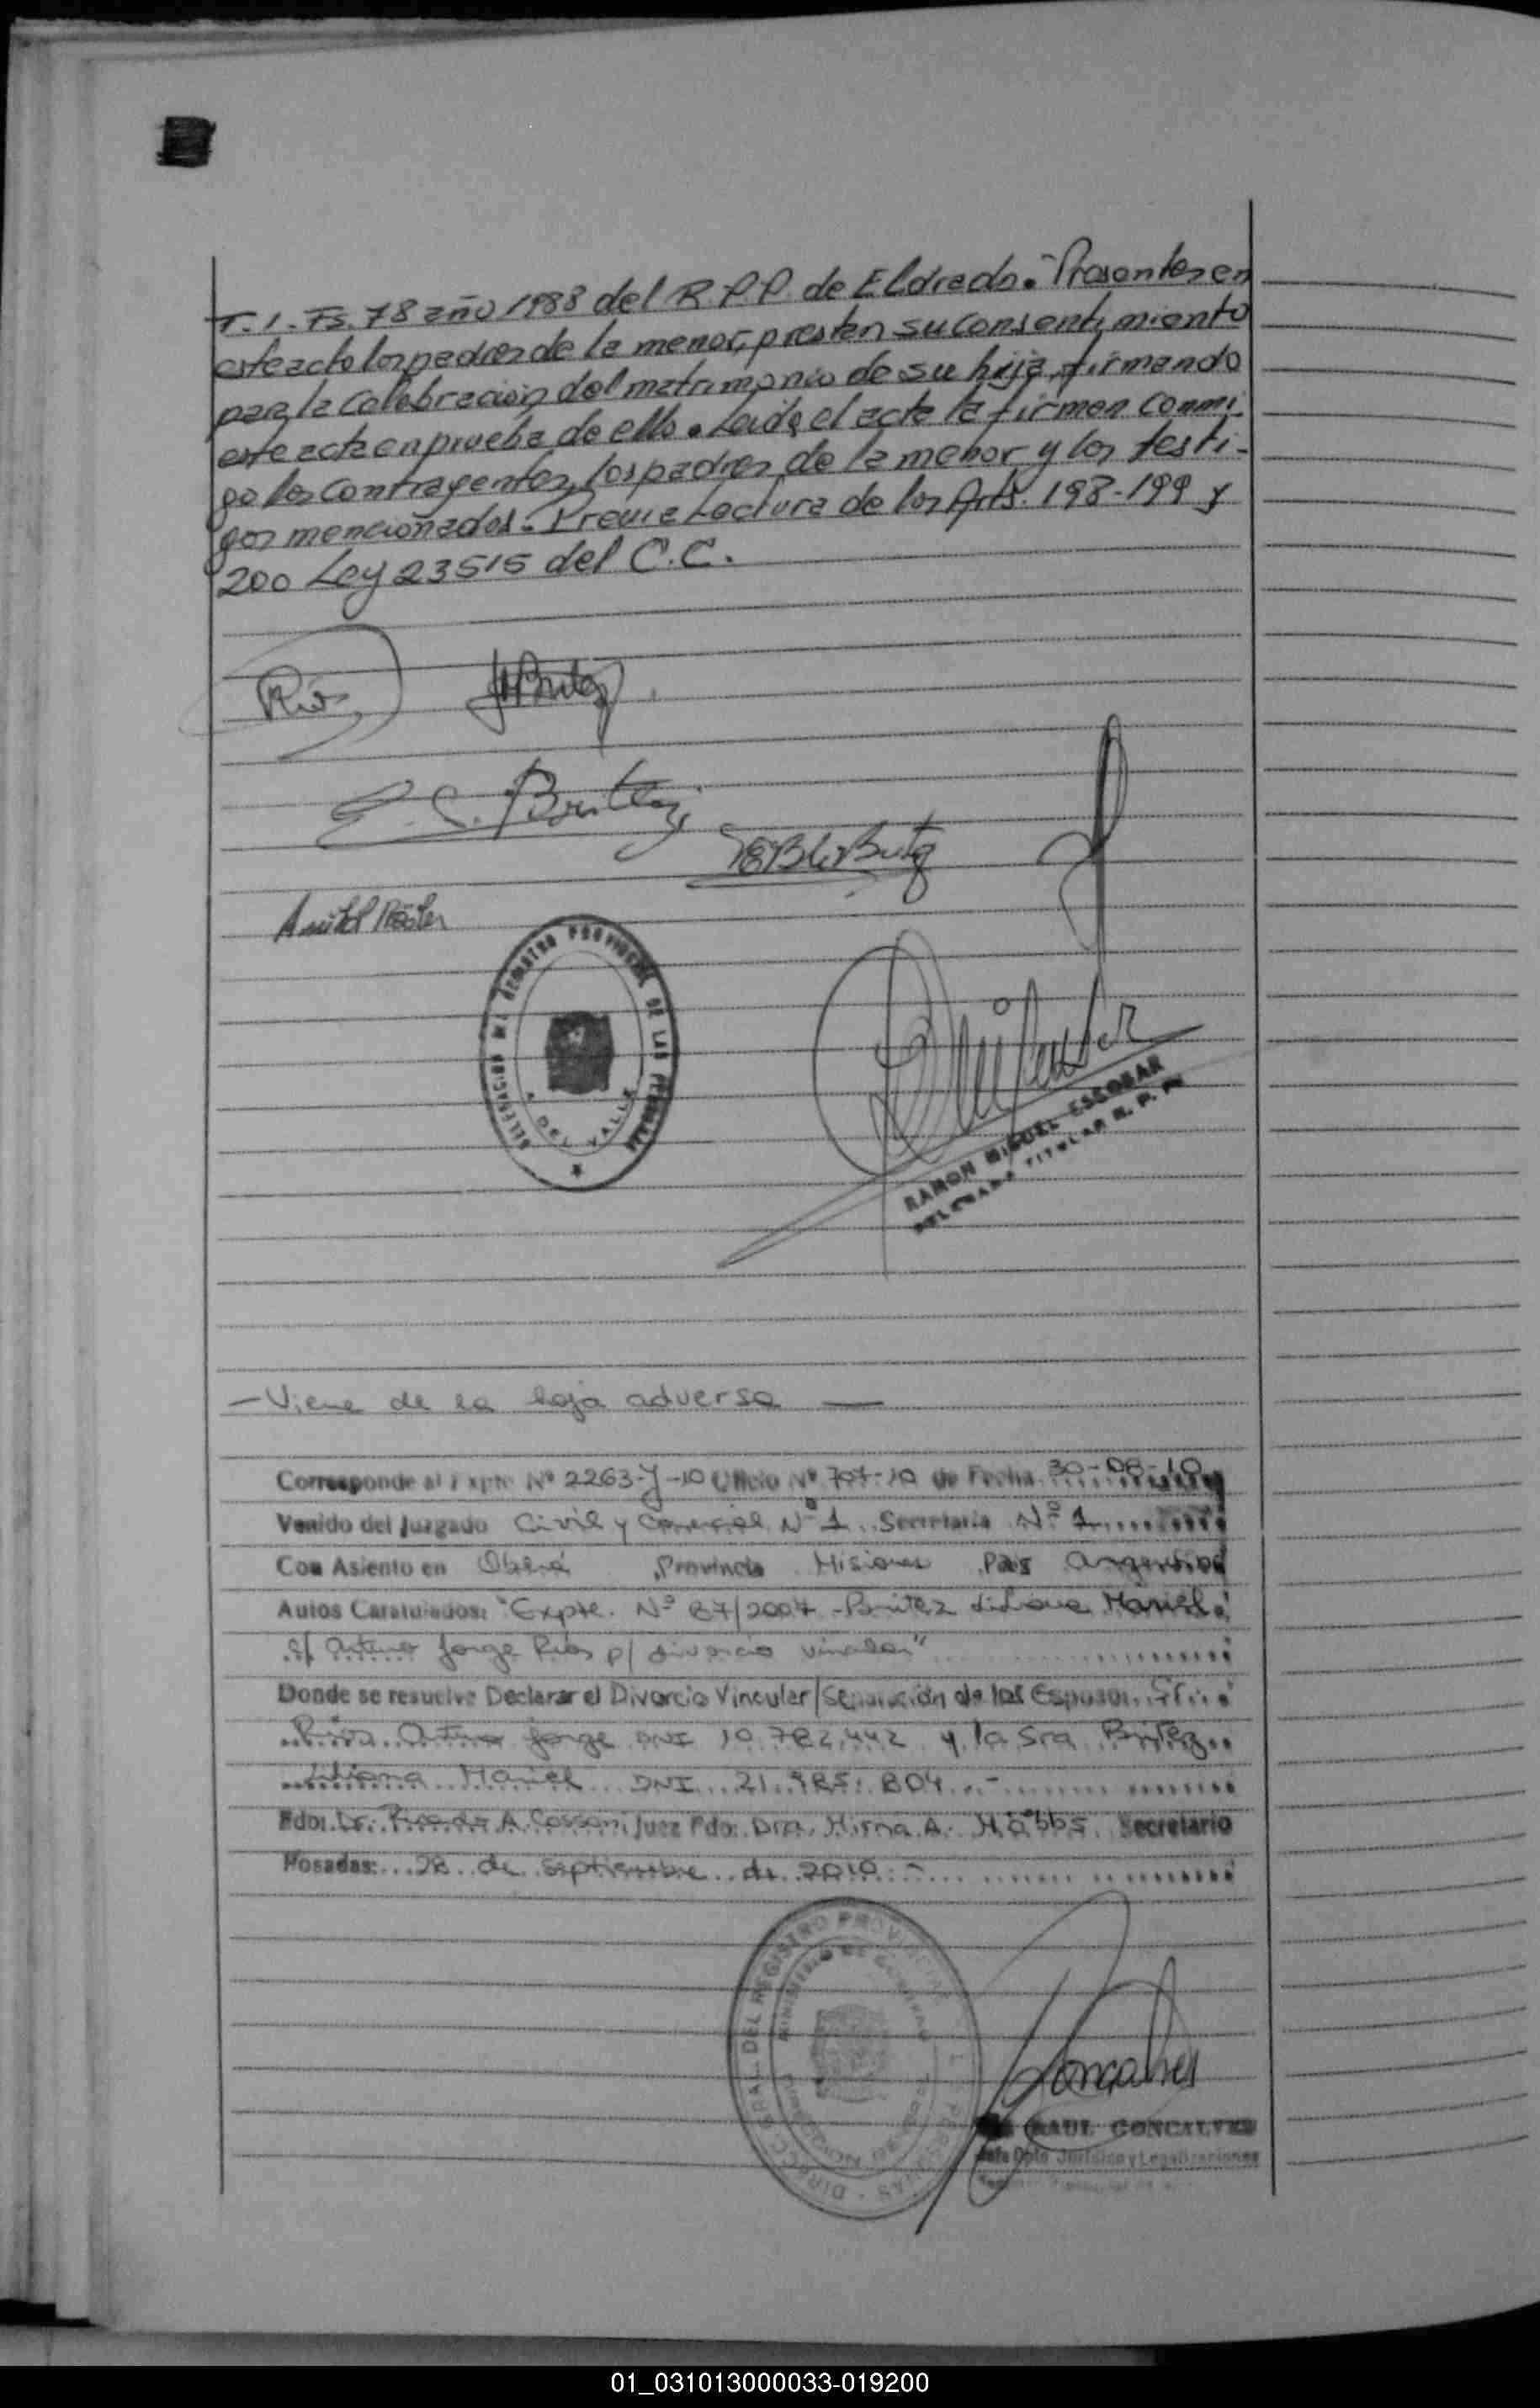 T. 1. Fs. 78 año 1988 del R.P.P. de Eldrado. Presentes en
este acto los padres de la menor, presten su consentimiento
para la celebración del matrimonio de su hija, firmando
este acta en prueba de ello. Leida el acta la firmen conmi-
go los contrayentes, los padres de la menor y los testi-
gos mencionados. Previa Lectura de los Arts. 198-199 y
200 Ley 23515 del C.C.
Ríos
E. S. Britez
DELEGACION DEL REGISTRO PROVINCIAL DE LAS PERSONAS
DEL VALLE
RAMON MIGUEL ESCOBAR
DELEGADO TITULAR R. P. P.
— Viene de la hoja adversa —
Corresponde al Expte Nº 2263-J-10 Oficio Nº 707-10 de Fecha 30-08-10
Venido del Juzgado Civil y Comercial Nº 1 Secretaria Nº 1
Con Asiento en Oberá Provincia Misiones Pais Argentina
Autos Caratulados: "Expte. Nº 87/2007 - Britez Liliana Mariel
c/ Arturo Jorge Ríos p/ divorcio vincular"
Donde se resuelve Declarar el Divorcio Vincular/Separación de los Esposos Sr.
Ríos Arturo Jorge DNI 10.782.442 y la Sra Britez
Liliana Mariel DNI 21.985.804 -
Fdo: Dr. Ricardo A. Cassoni Juez Fdo: Dra. Mirna A. Mabbs Secretario
Posadas: 28 de septiembre de 2010 -
DIRECC. GRAL. DEL REGISTRO PROVINCIAL DE LAS PERSONAS
MINISTERIO DE GOBIERNO
Goncalves
RAUL GONCALVES
Jefe Dpto Jurídico y Legalizaciones
01_031013000033-019200